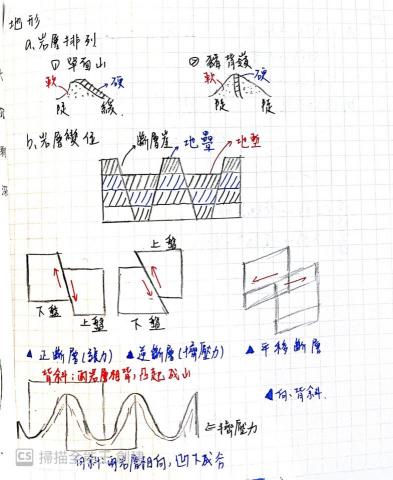 地形
a.岩層排列
① 單面山
② 豬背嶺
軟 硬
軟 硬
陡 緩
陡 陡
b.岩層變位
斷層崖 地壘 地塹
上盤
下盤 上盤
下盤
▲ 正斷層(張力) ▲ 逆斷層(擠壓力) ▲ 平移斷層
背斜:兩岩層相背,凸起成山
▲ 向、背斜
擠壓力
向斜:兩岩層相向,凹下成谷
CS 掃描全能王 創建